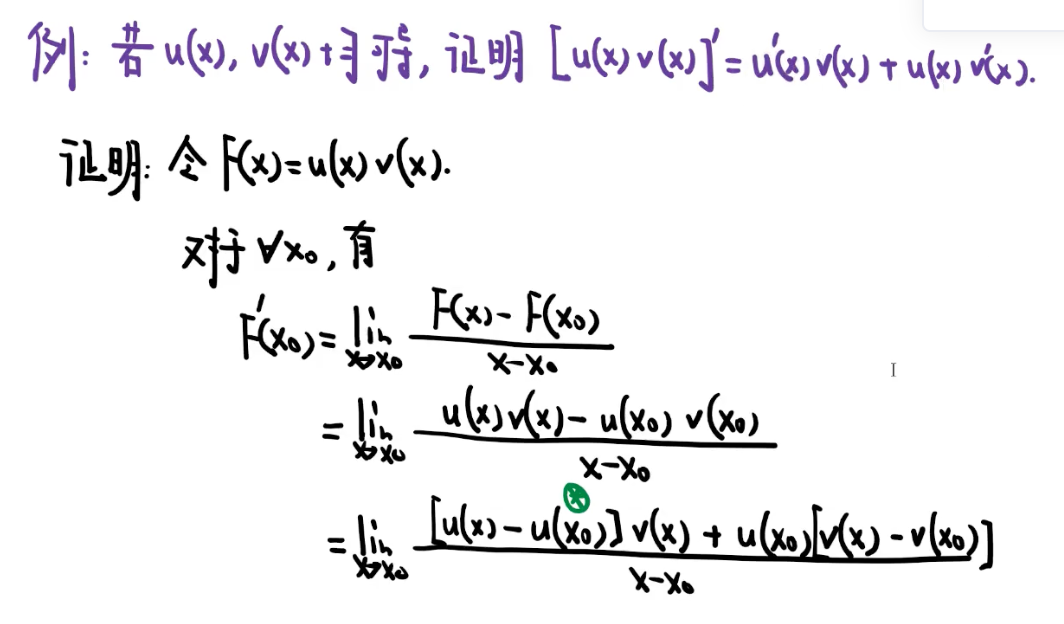 例: 若 u(x), v(x) 均可导, 证明 [u(x)v(x)]' = u'(x)v(x) + u(x)v'(x).
证明: 令 F(x)=u(x)v(x).
对于 ∀x₀, 有
F'(x₀) = lim_{x→x₀} \frac{F(x) - F(x₀)}{x-x₀}
= lim_{x→x₀} \frac{u(x)v(x) - u(x₀)v(x₀)}{x-x₀}
= lim_{x→x₀} \frac{[u(x) - u(x₀)]v(x) + u(x₀)[v(x) - v(x₀)]}{x-x₀}